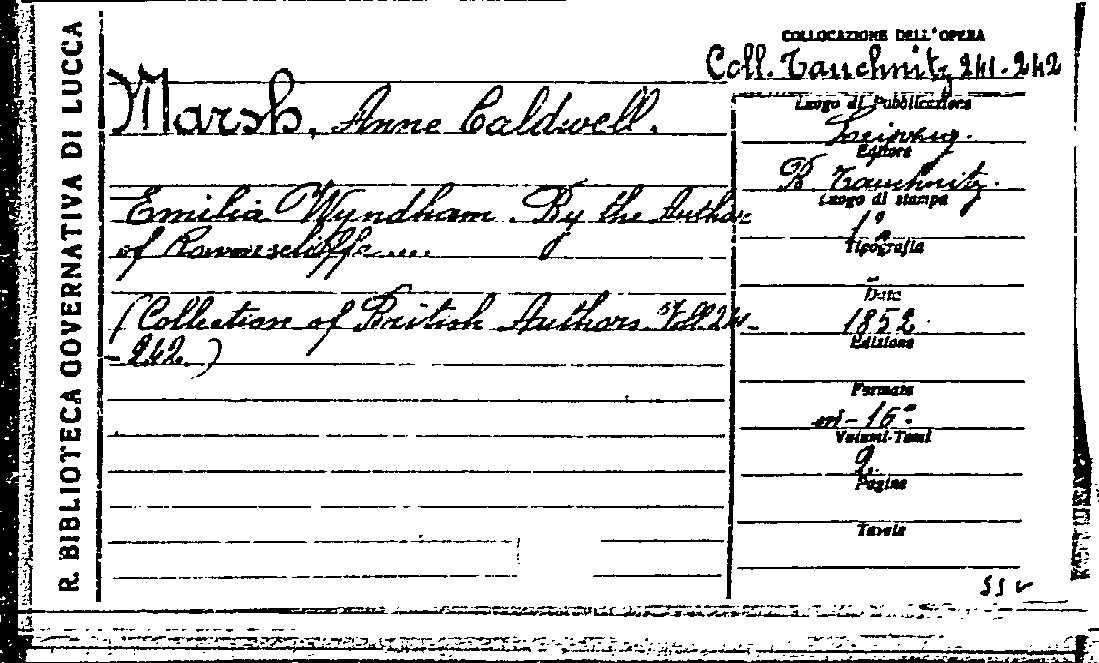 R. BIBLIOTECA GOVERNATIVA DI LUCCA
COLLOCAZIONE DELL'OPERA
Coll. Tauchnitz 241-242
Marsh, Anne Caldwell.
Emilia Wyndham. By the Author
of Rawenscliffe....
(Collection of British Authors. Voll. 241-
-242.)
Luogo di Pubblicazione
Leipzig.
Editore
B. Tauchnitz.
Luogo di stampa
Tipografia
Data
1852.
Edizione
Formato
in-16°
Volumi-Tomi
2.
Pagine
Tavole